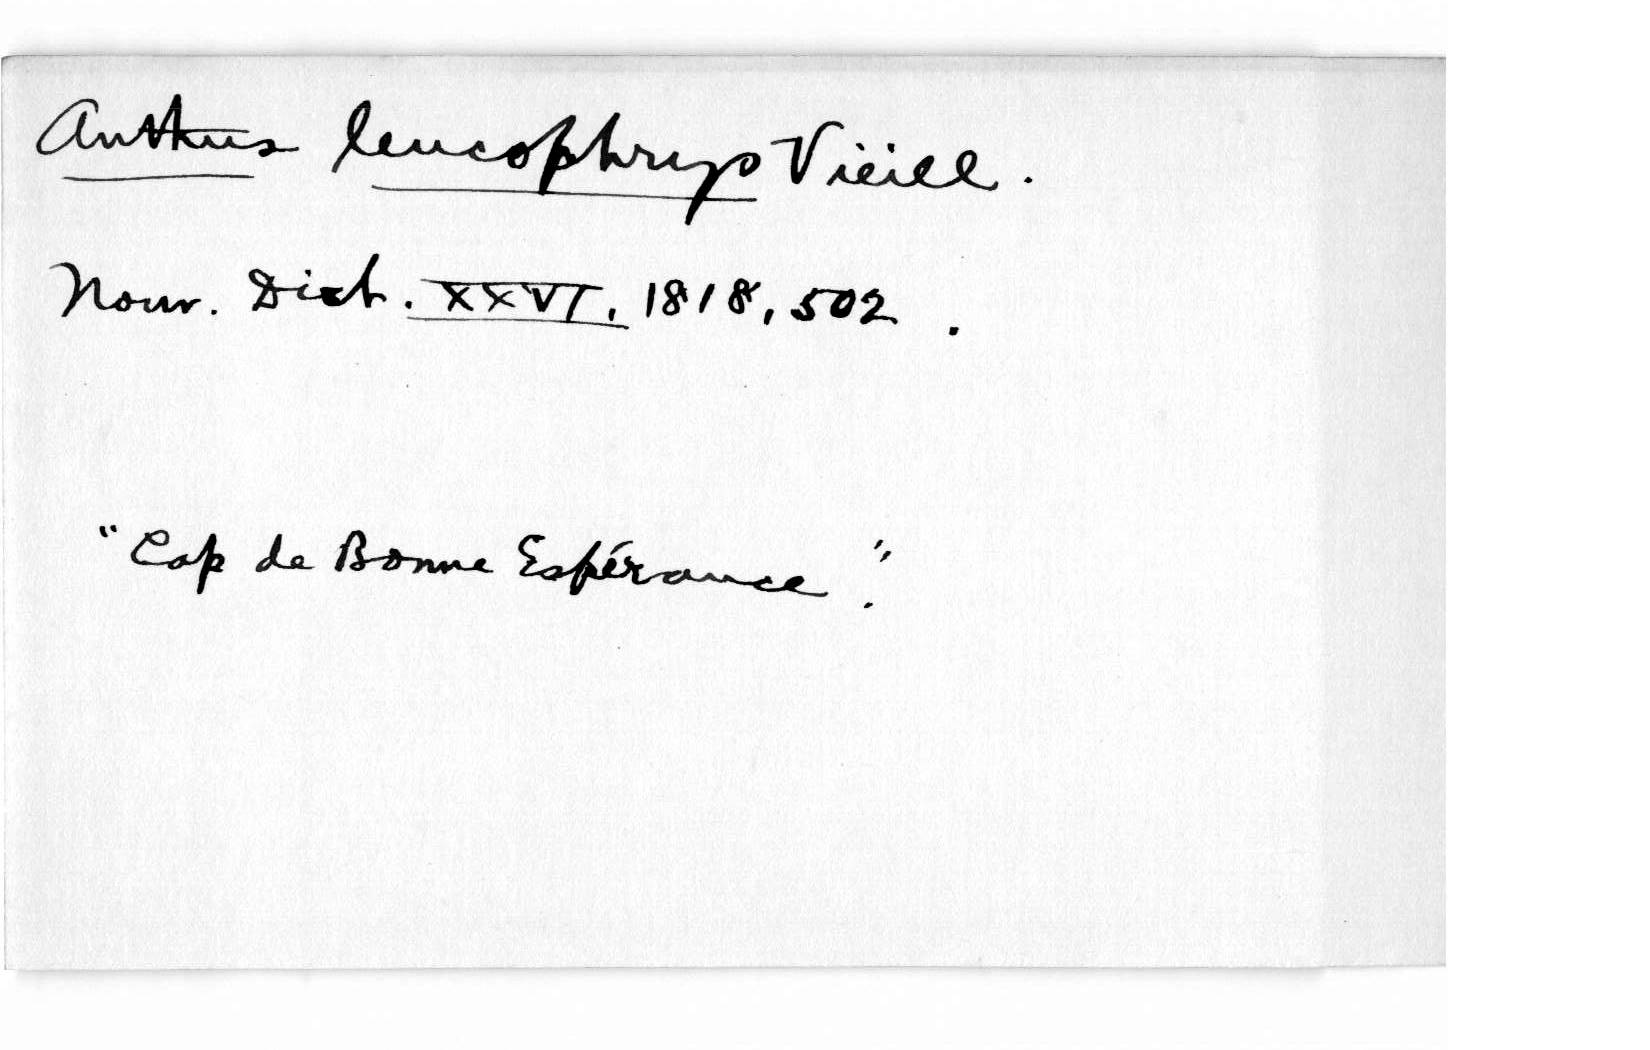 Anthus leucophrys Vieill.
Nouv. Dict. XXVI, 1818, 502.
"Cap de Bonne Espérance".